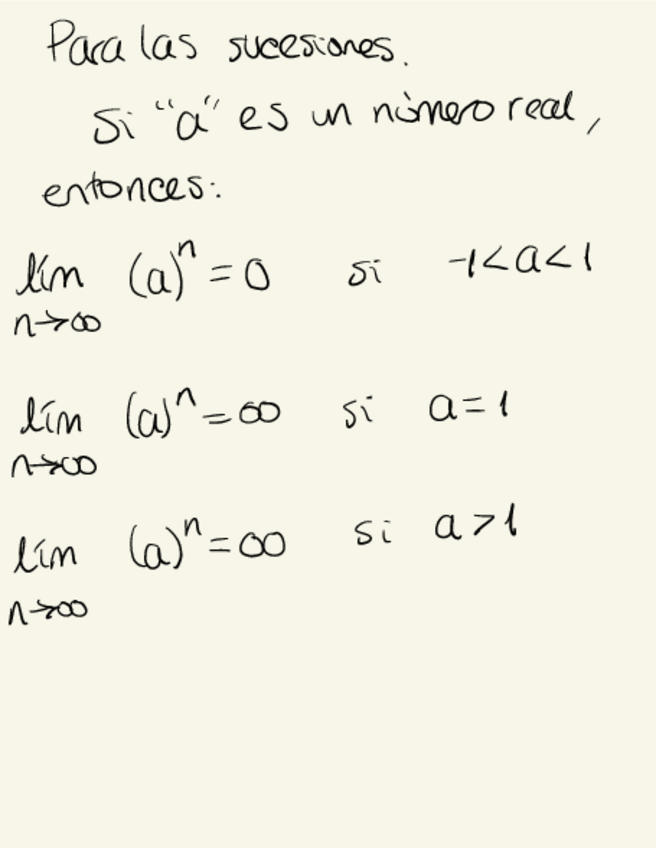 Para las sucesiones.
Si "a" es un número real,
entonces:
lím (a)ⁿ = 0 si -1<a<1
n→∞
lím (a)ⁿ = ∞ si a=1
n→∞
lím (a)ⁿ = ∞ si a>1
n→∞